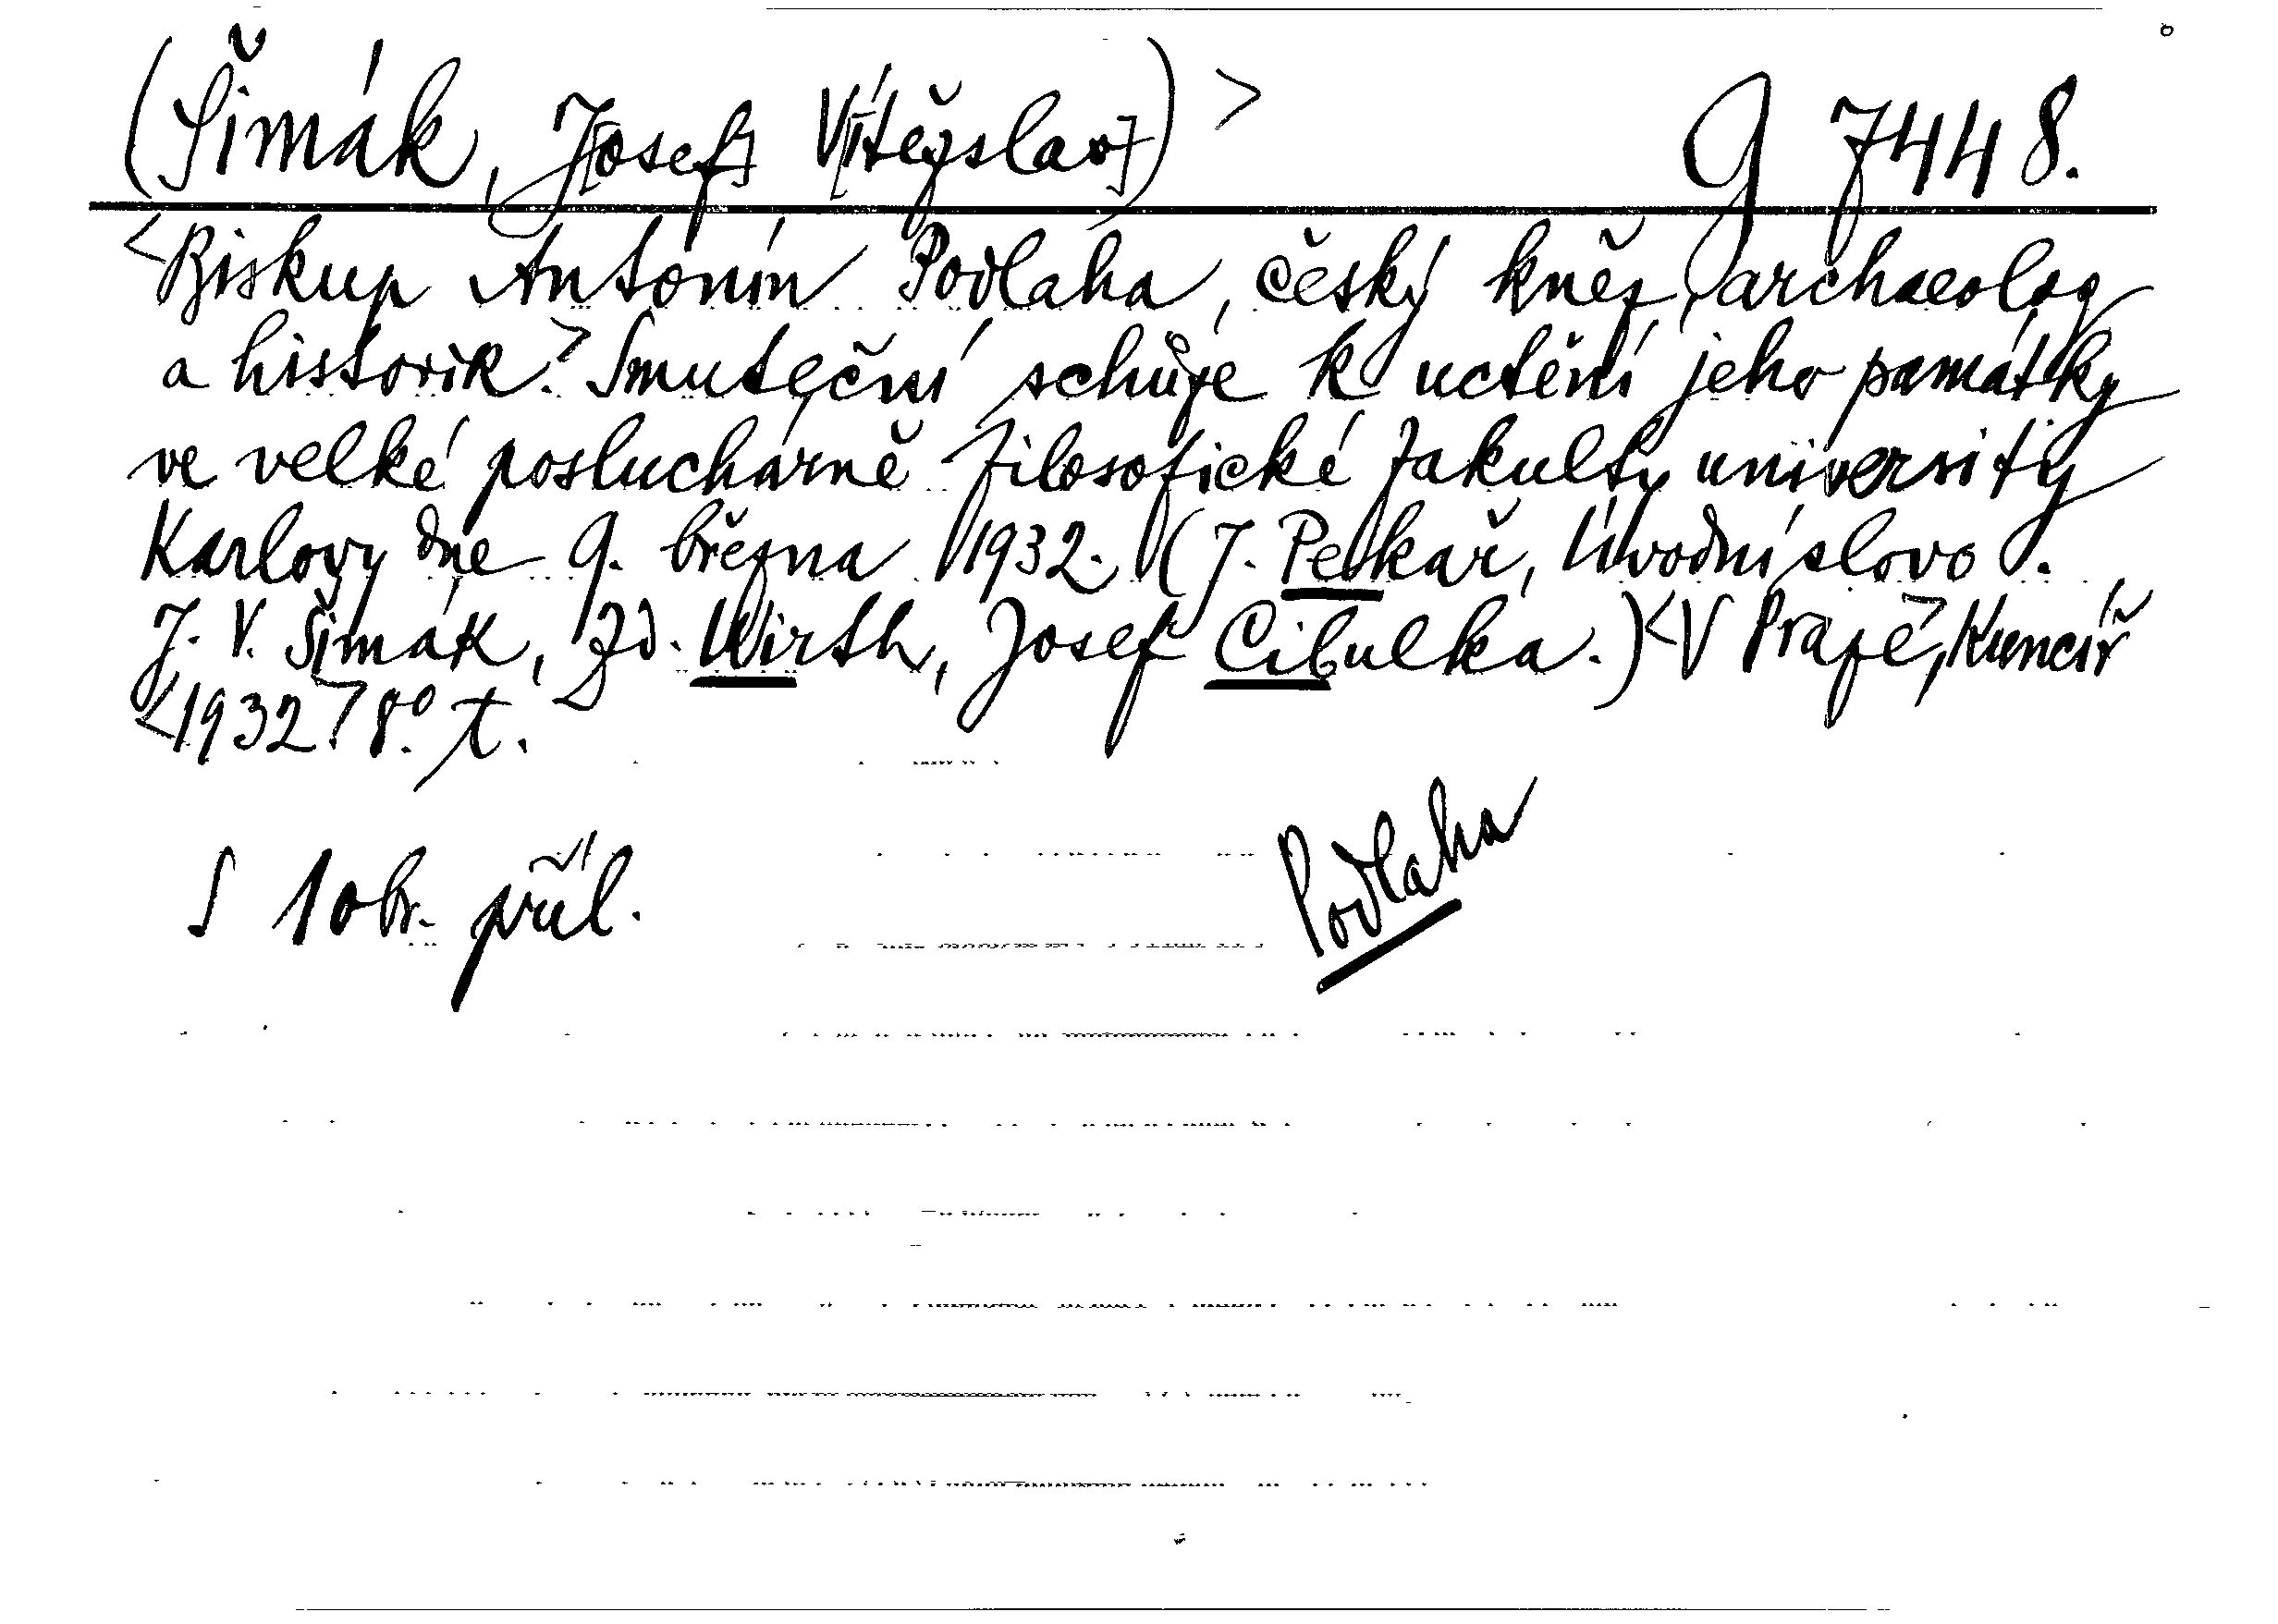 (Šimák, J[osef] V[ítězslav]) > g 7448.
<Biskup Antonín Podlaha, český kněz, archaeolog
a historik.> Smuteční schůze k uctění jeho památky
ve velké posluchárně filosofické fakulty university
Karlovy dne 9. března 1932. (J. Pekař, Úvodní slovo.
J. V. Šimák, Zd. Wirth, Josef Cibulka.) <V Praze>, Kuncíř
<1932.> 8°. t.
S 1 obr. příl.
Podlaha